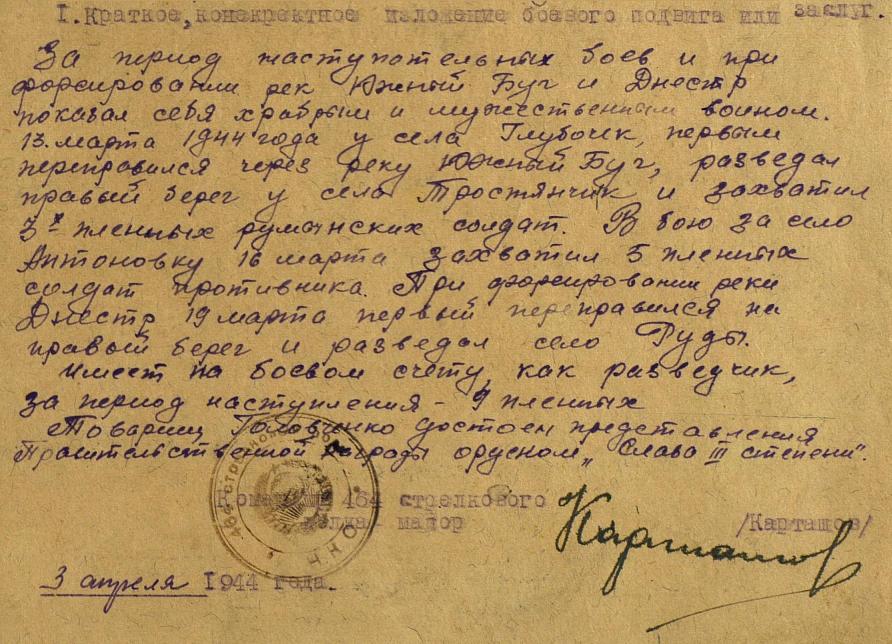 I. Краткое, конекректное изложение боевого подвига или заслуг.
За период наступательных боев и при
форсировании рек Южный Буг и Днестр
показал себя храбрым и мужественным воином.
13. марта 1944 года у села Глубочик, первым
переправился через реку Южный Буг, разведал
правый берег у села Тростянчик и захватил
3х пленных румынских солдат. В бою за село
Антоновку 16 марта захватил 5 пленных
солдат противника. При форсировании реки
Днестр 19 марта первый переправился на
правый берег и разведал село Руды.
Имеет на боевом счету, как разведчик,
за период наступления - 9 пленных
Товарищ Головченко достоен представления
Правительственной награды орденом „Слава III степени".
Командир 464 стрелкового
полка - майор /Карташов/
Карташов
464 СТРЕЛКОВЫЙ
3 апреля 1944 года.